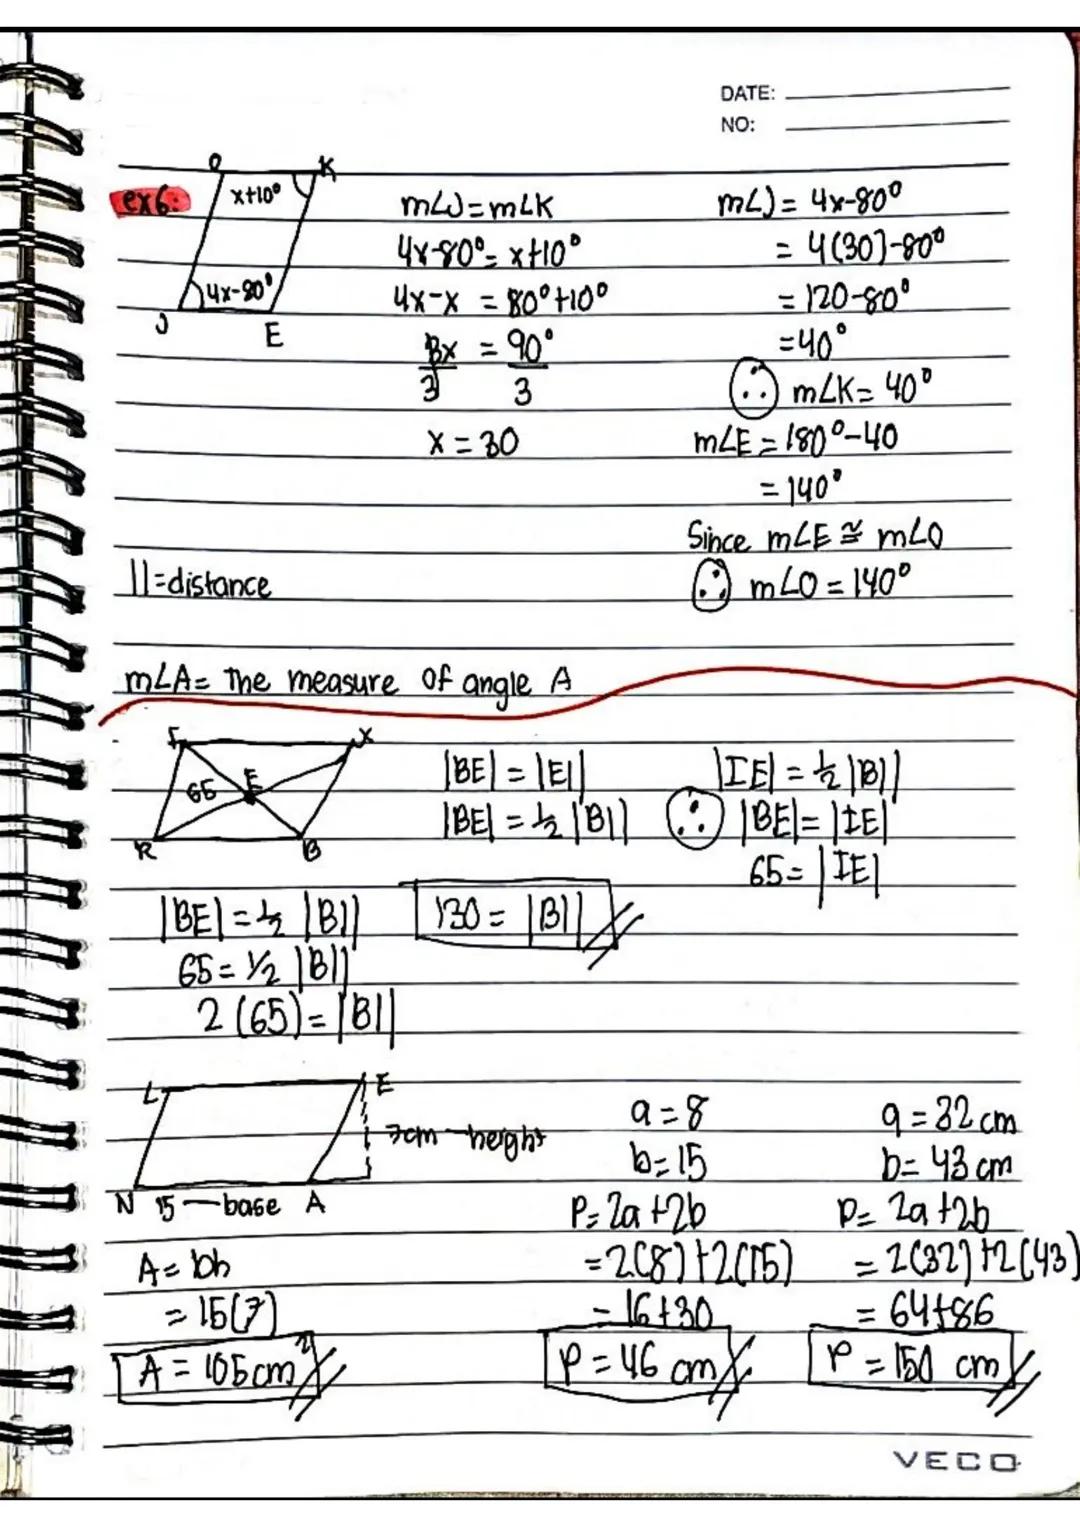 DATE:
NO:
ex6:
O K
x+10°
4x-80°
J E
m∠J=m∠K
4x-80°=x+10°
4x-x = 80°+10°
3x = 90°
3 3
x = 30
m∠J = 4x-80°
= 4(30)-80°
= 120-80°
=40°
∴ m∠K= 40°
m∠E = 180°-40
= 140°
Since m∠E ≅ m∠O
∴ m∠O = 140°
||=distance
m∠A= the measure of angle A
I X
65 E
R B
|BE| = |EI|
|BE| = ½ |BI|
|IE| = ½ |BI|
∴ |BE|= |IE|
65= |IE|
|BE| = ½ |BI|
65 = ½ |BI|
2 (65) = |BI|
130 = |BI|
L E
7cm - height
N 15 — base A
A = bh
= 15(7)
A = 105cm²
a = 8
b = 15
P = 2a +2b
= 2(8) + 2(15)
= 16+30
P = 46 cm
a = 32 cm
b = 43 cm
P = 2a +2b
= 2(32) +2(43)
= 64+86
P = 150 cm
VECO